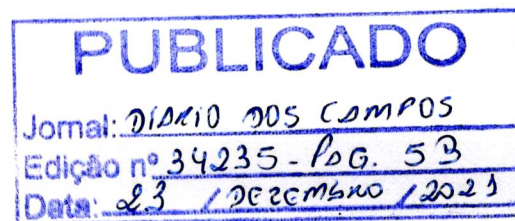 PUBLICADO
Jornal: DIÁRIO DOS CAMPOS
Edição nº 34235 - PAG. 5B
Data: 23 / DEZEMBRO / 2021